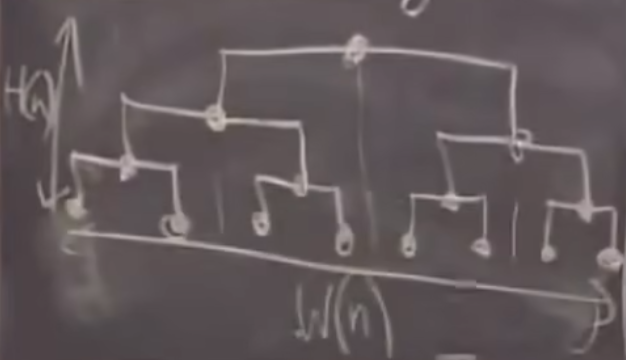 H(n)
W(n)